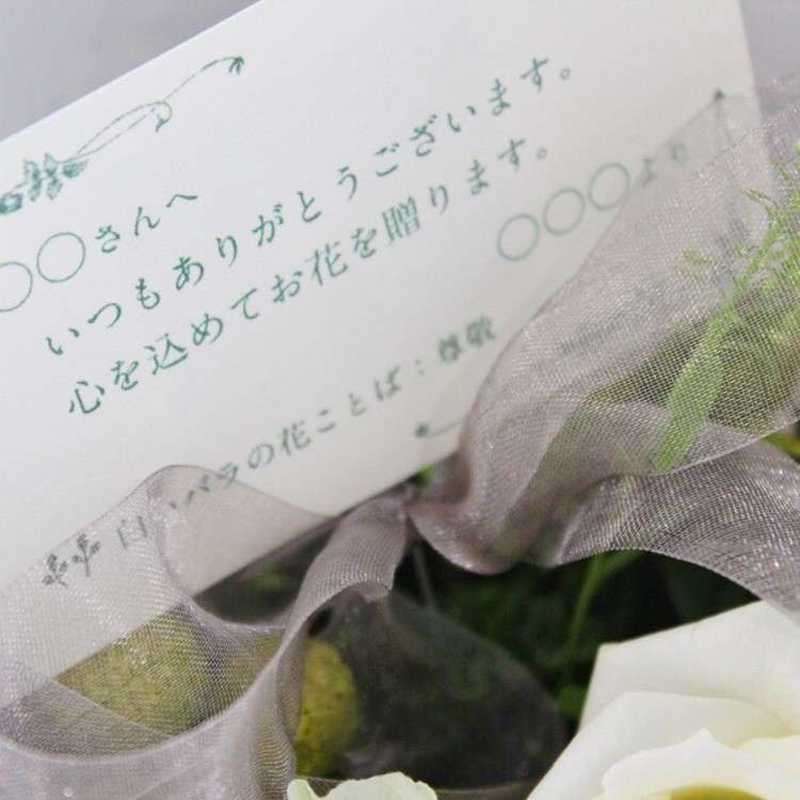 ○○さんへ
いつもありがとうございます。
心を込めてお花を贈ります。
○○○より
白いバラの花ことば：尊敬